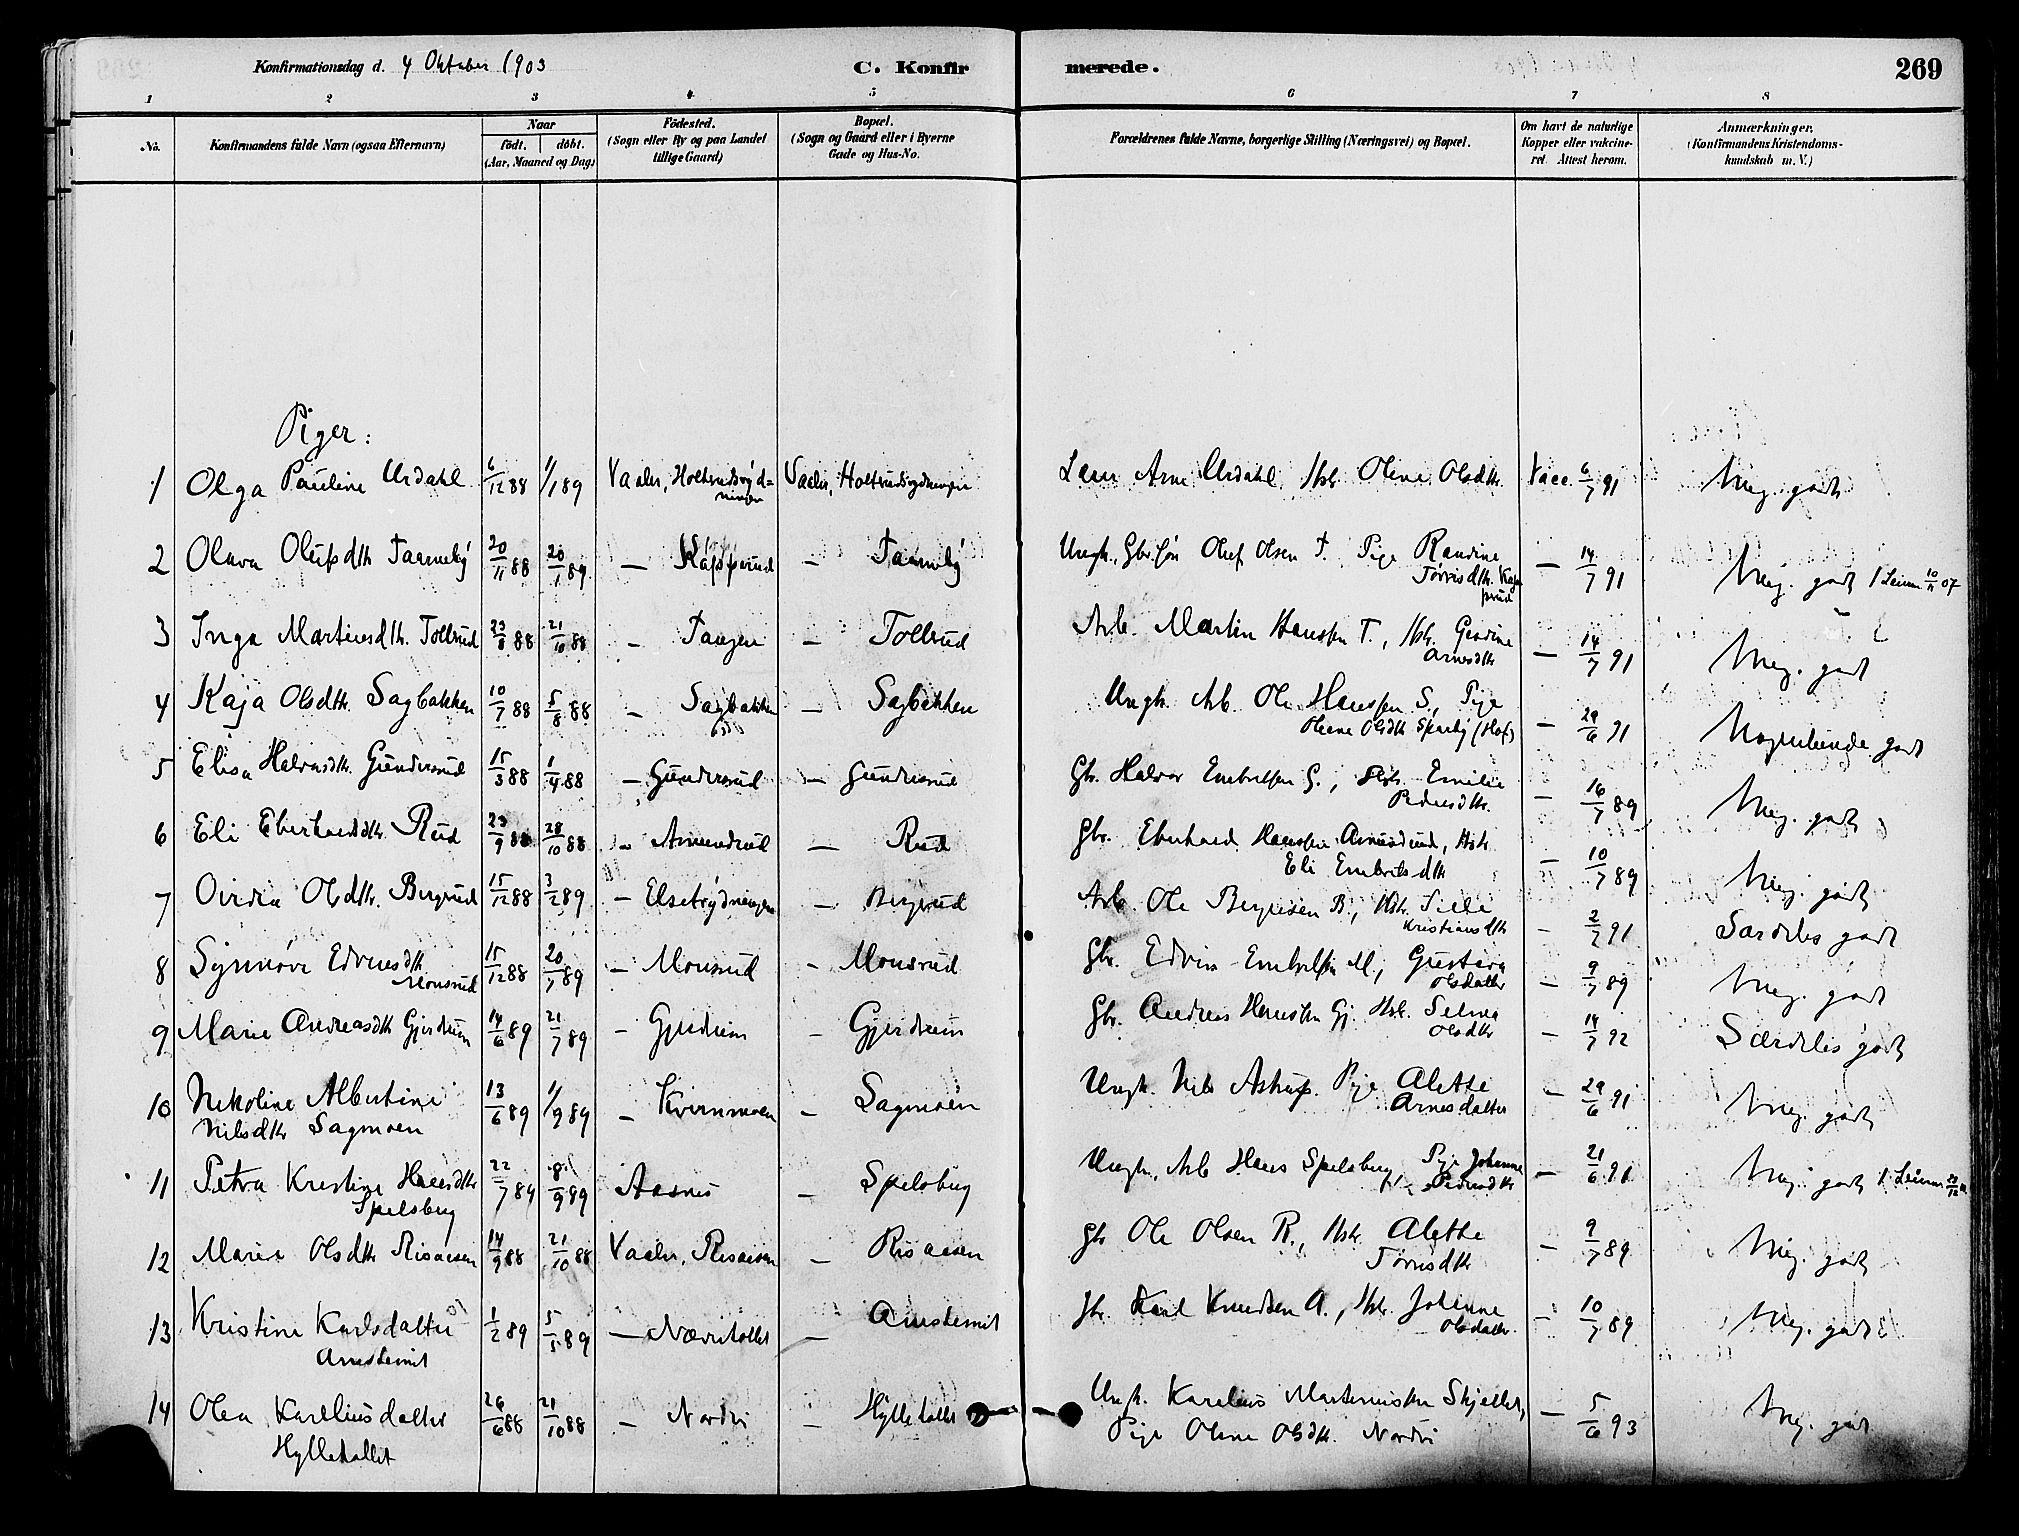 Konfirmationsdag d. 4 Oktober 1903 C. Konfirmerede. 269
1 2 3 4 5 6 7 8
No. Konfirmandens fulde Navn (ogsaa Efternavn) Naar födt. döbt. (Aar, Maaned og Dag) Födested. (Sogn eller By og paa Landet tillige Gaard) Bopæl. (Sogn og Gaard eller i Byerne Gade og Hus-No.) Forældrenes fulde Navne, borgerlige Stilling (Næringsvei) og Bopæl. Om havt de naturlige Kopper eller vakcineret. Attest herom. Anmærkninger. (Konfirmandens Kristendomskundskab m. V.)
Piger:
1 Olga Pauline Urdahl 6/12 88 1/1 89 Vaaler, Vaaler, Arne Urdahl, Hst. Oline Olsdtr. Vacc. 6/7 91 Meg. godt
2 Olava Olufsdtr Taarneby 20/11 88 20/1 89 — Kasperud — Taarneby Ungk., Gbr.søn Oluf Olsen T. Pige Randine — 14/7 91 Meg. godt
3 Inga Martinsdtr. Tollerud 23/8 88 21/10 88 — Tangen — Tollerud Arb. Martin Hanssen T., Hst. Arnesdtr — 14/7 91 Meg. godt
4 Kaja Olsdtr. Sagbakken 10/7 88 5/8 88 — Sagbakken — Sagbakken Ungk. Arb. Ole Hanssen S., Pige Olsdtr (Hof) — 29/6 91 godt
5 Elisa Halvorsdtr. Gundersrud 15/3 88 1/4 88 — Gundersrud — Gundersrud Gbr. Halvor Embretsen G., Hst. Emilie Pedersdtr. — 16/7 89 Meg. godt
6 Eli Eberhardsdtr. Rud 23/9 88 28/10 88 — Amundrud — Rud Gbr. Eberhard Hanssen Amundrud, Hst. Eli Embretsdtr — 10/7 89 Meg. godt
7 Ovidia Olsdtr. Bergerud 15/12 88 3/2 89 — — Bergerud Arb. Ole B., Hst. Kristiansdtr — 2/2 91 Særdeles godt
8 Synnøve Edvinsdtr Monsrud 15/12 88 20/1 89 — Monsrud — Monsrud Gbr. Edvin Embretsen M., Gustava Olsdatter — 9/7 89 Meg. godt
9 Marie Andreasdtr Gjerdrum 14/6 89 21/7 89 — Gjerdrum — Gjerdrum Gbr. Andreas Hanssen Gj. Hst. Selma Olsdtr — 14/7 92 Særdeles godt
10 Nikoline Albertine Nilsdtr Sagmoen 13/6 89 1/9 89 — Kvernmoen — Sagmoen Ungk. Nils Astrup. Pige Alette Arnesdatter — 29/6 91 Meg. godt
11 Petra Kristine Hansdtr Spelsberg 22/7 89 8/9 89 Aasnes — Spelsberg Ungk., Arb Hans Spelsberg, Pige Johanne Pedersdtr — 21/6 91 Meg. godt
12 Marie Olsdtr Risaasen 14/9 88 21/10 88 Vaaler, Risaasen — Risaasen Gbr Ole Olsen R., Hst. Alette — 9/7 89 Meg. godt
13 Kristine Karlsdatter 1/2 89 5/5 89 — — Karl Knudsen A., Hst. Johanne Olsdatter — 10/7 89 Meg. godt
14 Olea Kareliusdatter Hyllehallet 26/6 88 21/10 88 — Nordvi — Hyllehallet Ungk. Karelius Martiniussen Pige Oline Olsdtr. Nordvi — 5/6 93 Meg. godt